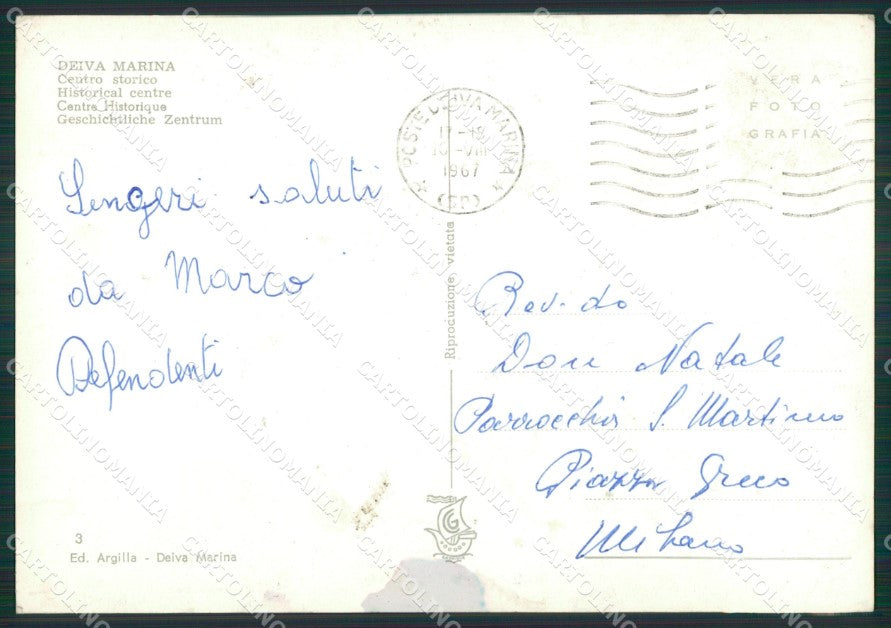 DEIVA MARINA
Centro storico
Historical centre
Centre Historique
Geschichtliche Zentrum
Sengeri saluti
da Marco
Defendenti
3
Ed. Argilla - Deiva Marina
POSTE DEIVA MARINA
17-18
1967
(SP)
Riproduzione vietata
VERA
FOTO
GRAFIA
Rev. do
Don Natale
Parrocchia S. Martino
Piazza Greco
Milano
G
CARTOLINOMANIA